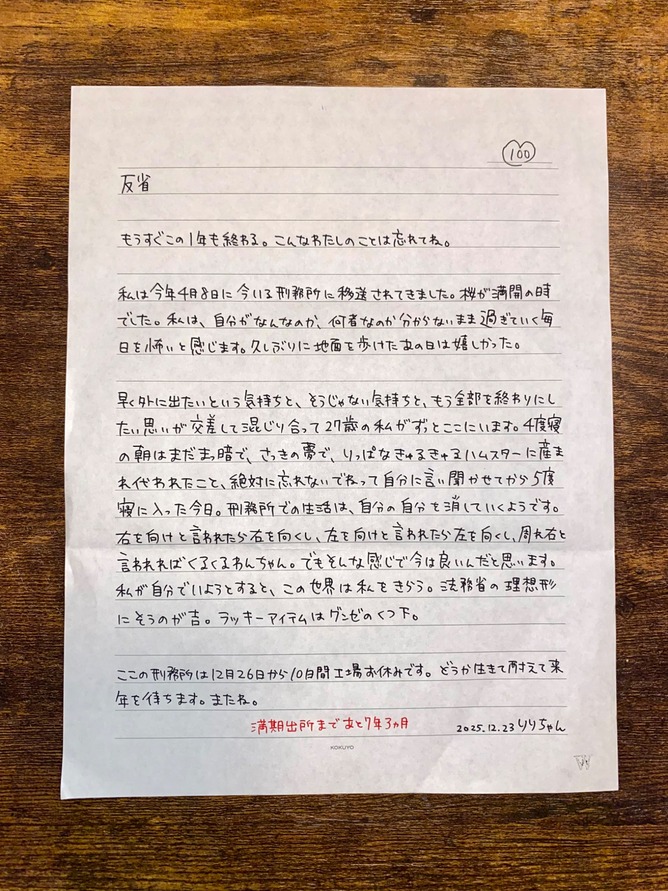 100
反省
もうすぐこの1年も終わる。こんなわたしのことは忘れてね。
私は今年4月8日に今いる刑務所に移送されてきました。桜が満開の時
でした。私は、自分がなんなのか、何者なのか分からないまま過ぎていく毎
日を怖いと感じます。久しぶりに地面を歩けたあの日は嬉しかった。
早く外に出たいという気持ちと、そうじゃない気持ちと、もう全部を終わりにし
たい思いが交差して混じり合って27歳の私がずっとここにいます。4度寝
の朝はまだまっ暗で、さっきの夢で、りっぱなきゅるきゅるハムスターに産ま
れ代わられたこと、絶対に忘れないでねって自分に言い聞かせてから5度
寝に入った今日。刑務所での生活は、自分の自分を消していくようです。
右を向けと言われたら右を向くし、左を向けと言われたら左を向くし、周れ右と
言われればくるくるわんちゃん。でもそんな感じで今は良いんだと思います。
私が自分でいようとすると、この世界は私をきらう。法務省の理想形
にそうのが吉。ラッキーアイテムはグンゼのくつ下。
ここの刑務所は12月26日から10日間工場お休みです。どうか生きて耐えて来
年を待ちます。またね。
満期出所まであと7年3ヵ月
2025.12.23 りりちゃん
KOKUYO
W